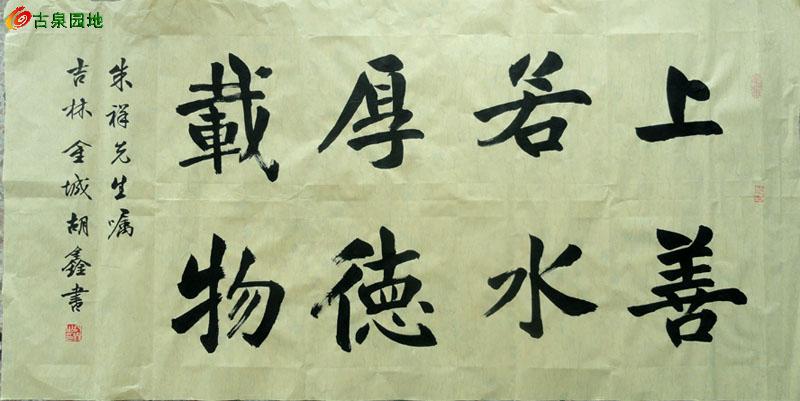 古泉园地
上善
若水
厚德
載物
朱祥先生嘱
吉林金城胡鑫書